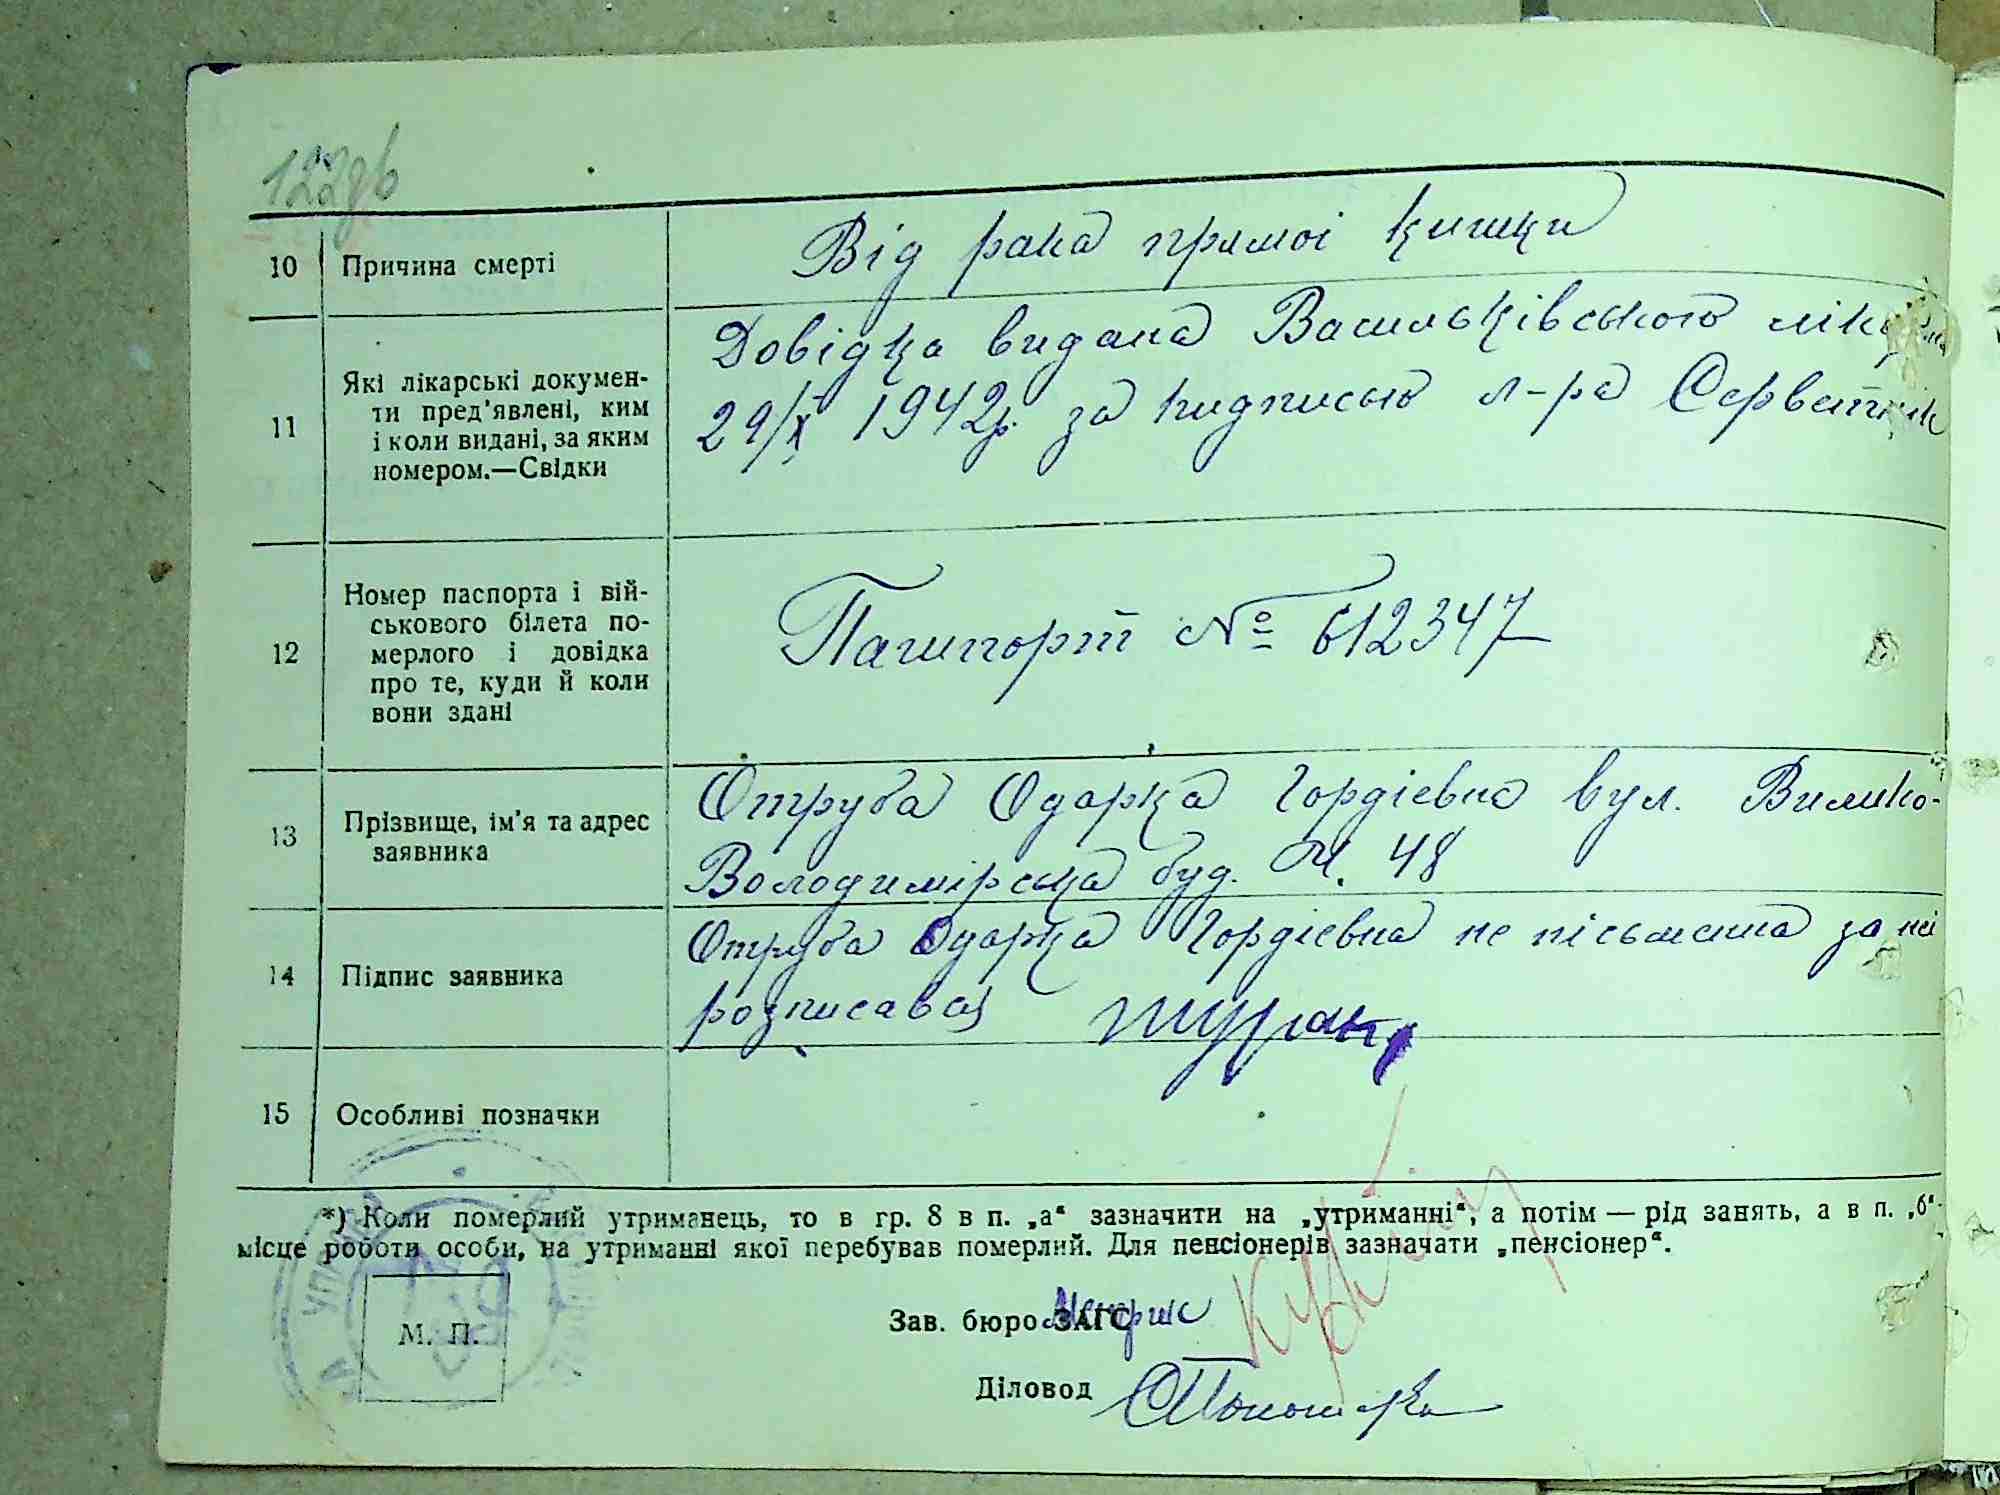 122дв
10 Причина смерті
Від рака прямоі кишки
11 Які лікарські докумен-
ти пред'явлені, ким
і коли видані, за яким
номером.—Свідки
Довідка видана Васильківського
29/X 1942р. за підписью л-ра
12 Номер паспорта і вій-
ськового білета по-
мерлого і довідка
про те, куди й коли
вони здані
Пашпорт № 612347
13 Прізвище, ім'я та адрес
заявника
Отруба Одарка Гордіевна вул. Велико-
Володимірська буд. Ч. 48
14 Підпис заявника
Отруба Одарка Гордіевна не пісьмена за неі
розписавсь
15 Особливі позначки
*) Коли померлий утриманець, то в гр. 8 в п. „а“ зазначити на „утриманні“, а потім — рід занять, а в п. „б“-
місце роботи особи, на утриманні якої перебував померлий. Для пенсіонерів зазначати „пенсіонер“.
М. П.
Зав. бюро ЗАГС
Діловод